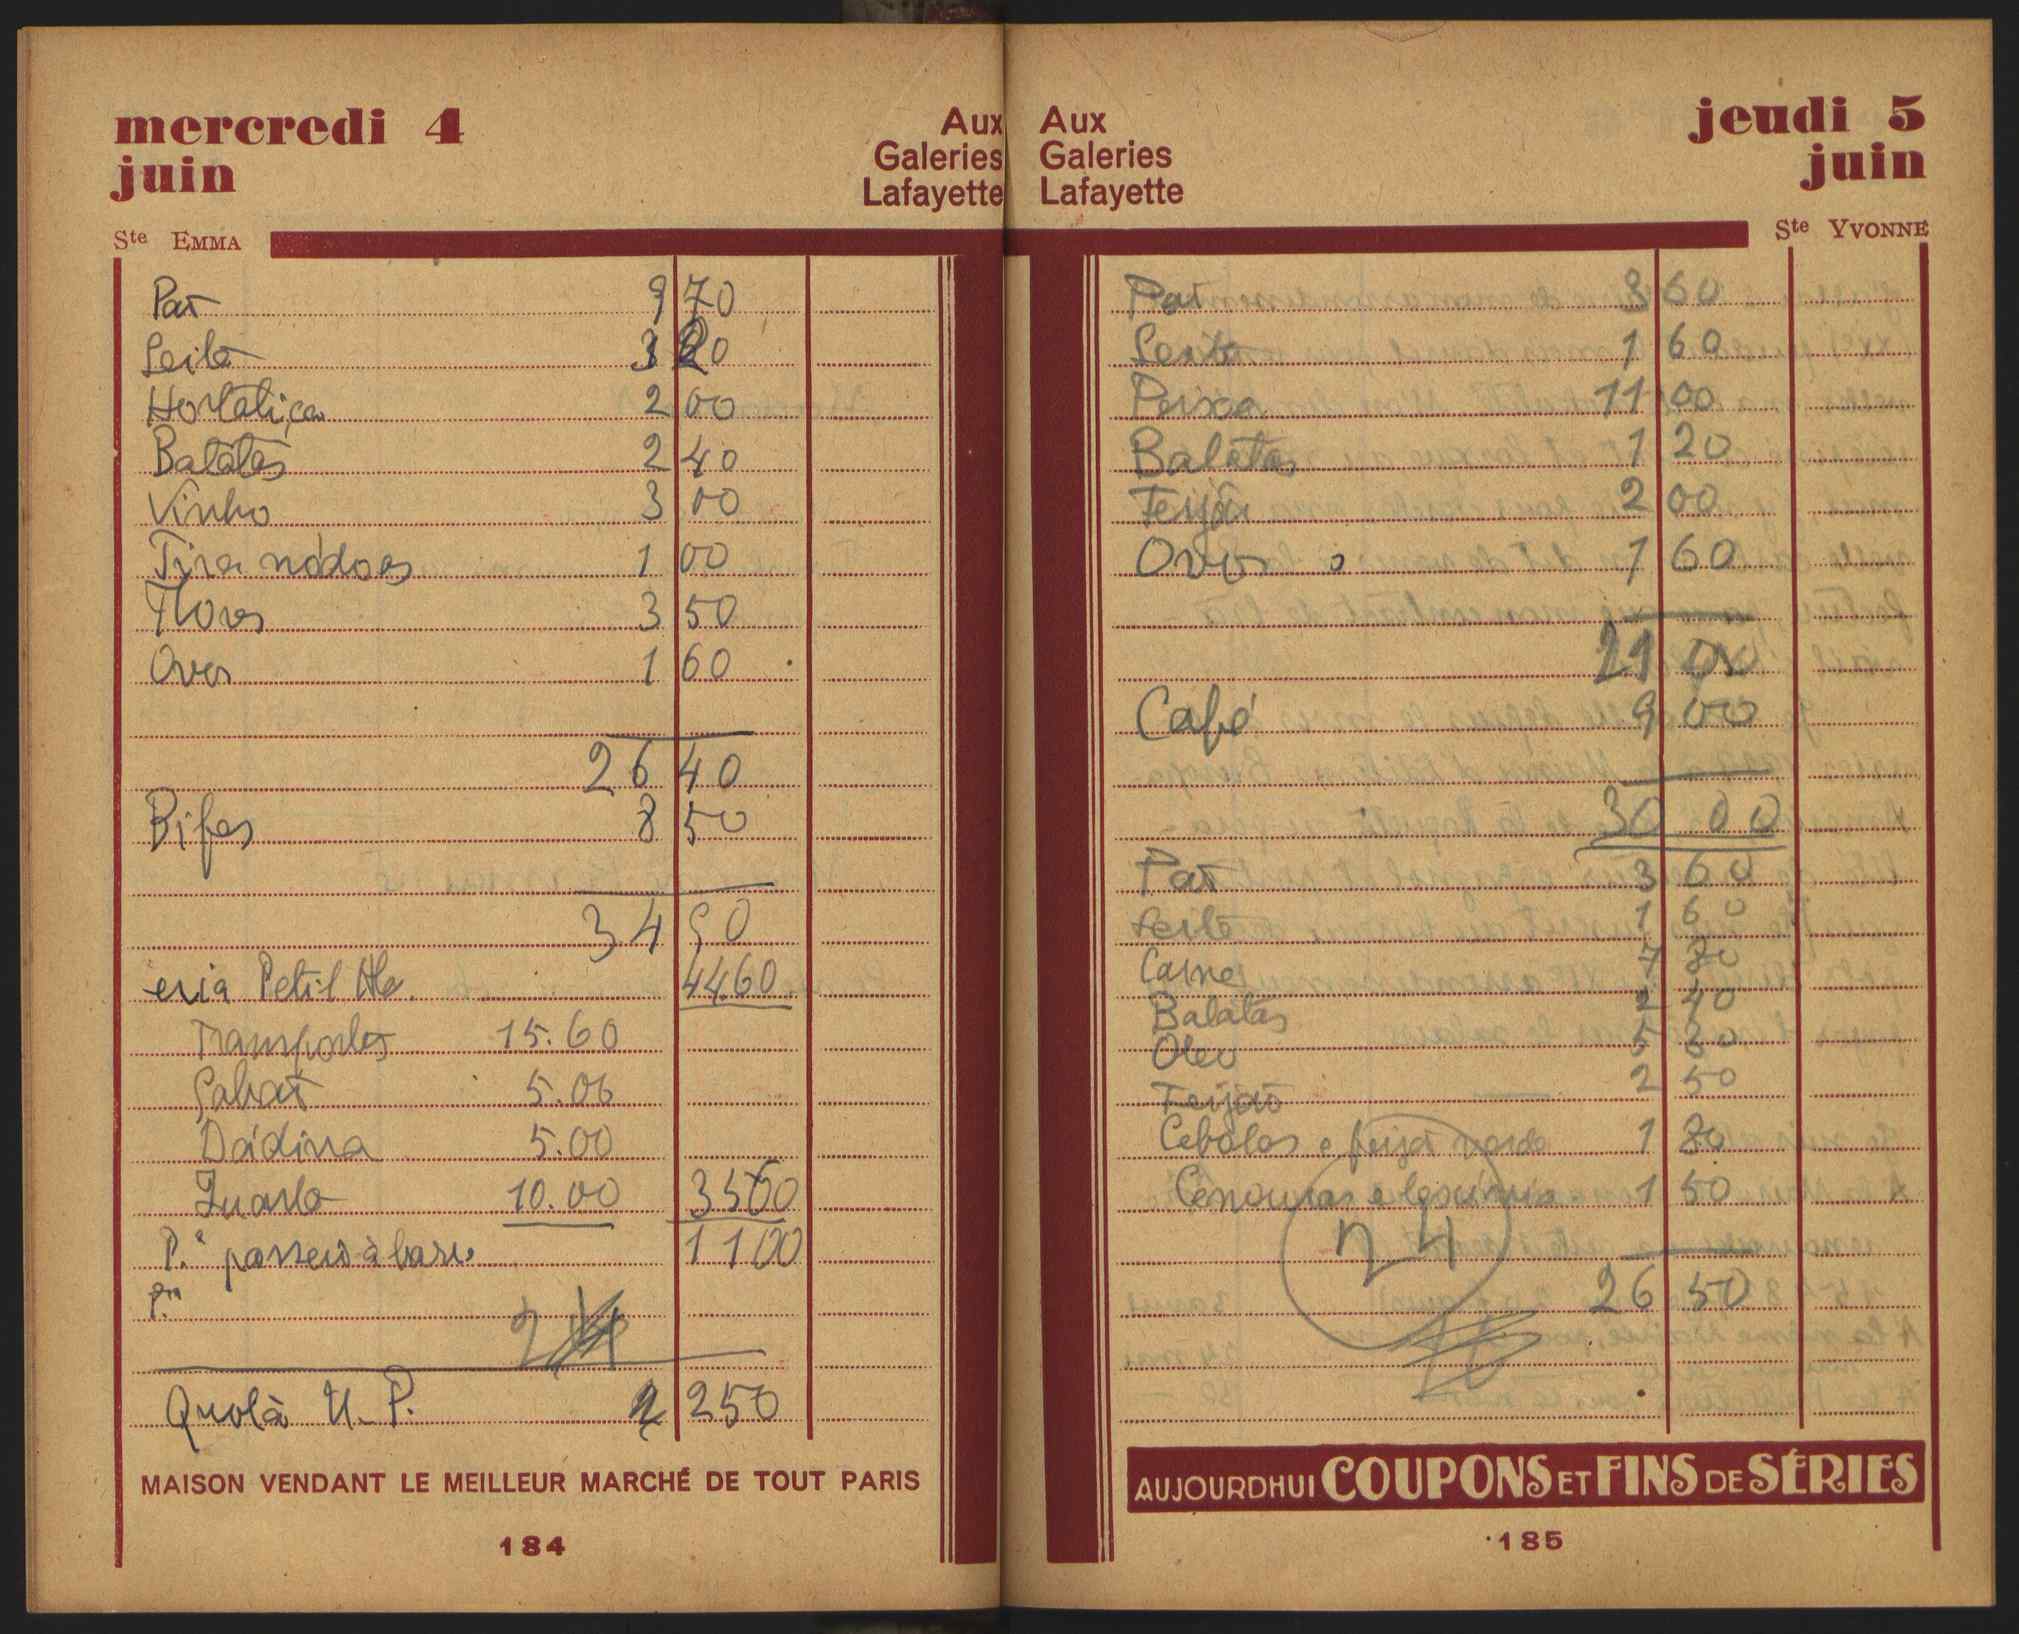 mercredi 4
juin
Aux
Galeries
Lafayette
Ste EMMA
Pão 9 70
Leite 3 20
Hortaliça 2 00
Batatas 2 40
Vinho 3 00
Tira nódoas 1 00
Flores 3 50
Ovos 1 60
26 40
Bifes 8 50
34 90
Petit 44.60
Transportes 15.60
5.00
Dádiva 5.00
Quarto 10.00 35 60
P.ª passeio à 11 00
P.ª
24
Quota U. P. 2 250
MAISON VENDANT LE MEILLEUR MARCHÉ DE TOUT PARIS
184
Aux
Galeries
Lafayette
jeudi 5
juin
Ste YVONNE
Pão 3 60
Leite 1 60
Peixe 11 00
Batatas 1 20
Feijão 2 00
Ovos 1 60
21 00
Café 9 00
30 00
Pão 3 60
Leite 1 60
Carne 7 80
Batatas 2 40
Oleo 5 80
Feijão 2 50
Cebolas e feijão verde 1 80
Cenouras e 1 50
24
26 50
AUJOURDHUI COUPONS ET FINS DE SÉRIES
185